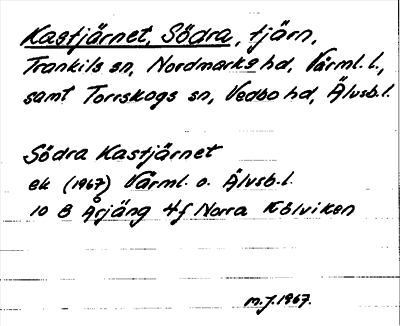 Kastjärnet, Södra, tjärn,
Trankils sn, Nordmarks hd, Värml. l.,
samt Torrskogs sn, Vedbo hd, Älvsb. l.
Södra Kastjärnet
ek (1967) Värml. o. Älvsb. l.
10 B Årjäng 4f Norra Kölviken
M.J. 1967.